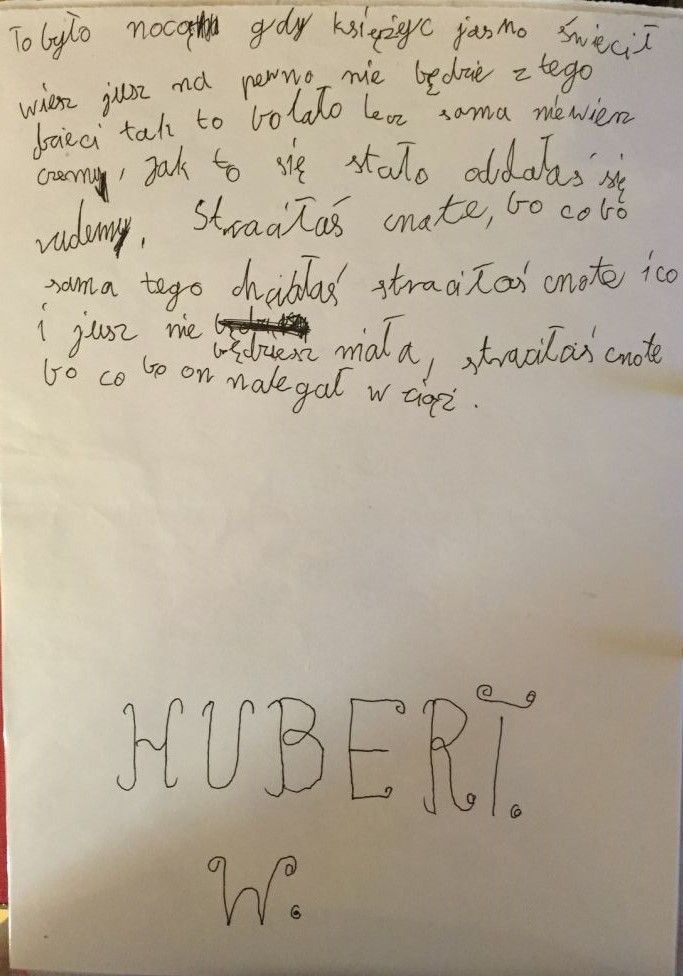 To było nocą gdy księżyc jasno święcił
wiesz jusz na pewno nie będzie z tego
dzieci tak to bolało lecz sama niewiesz
czemy, jak to się stało oddałaś się
rudemy. Straciłaś cnote, bo co bo
sama tego chciałaś straciłaś cnote i co
i jusz nie
będziesz miała, straciłaś cnote
bo co bo on nalegał w ciąż.
HUBERT.
W.